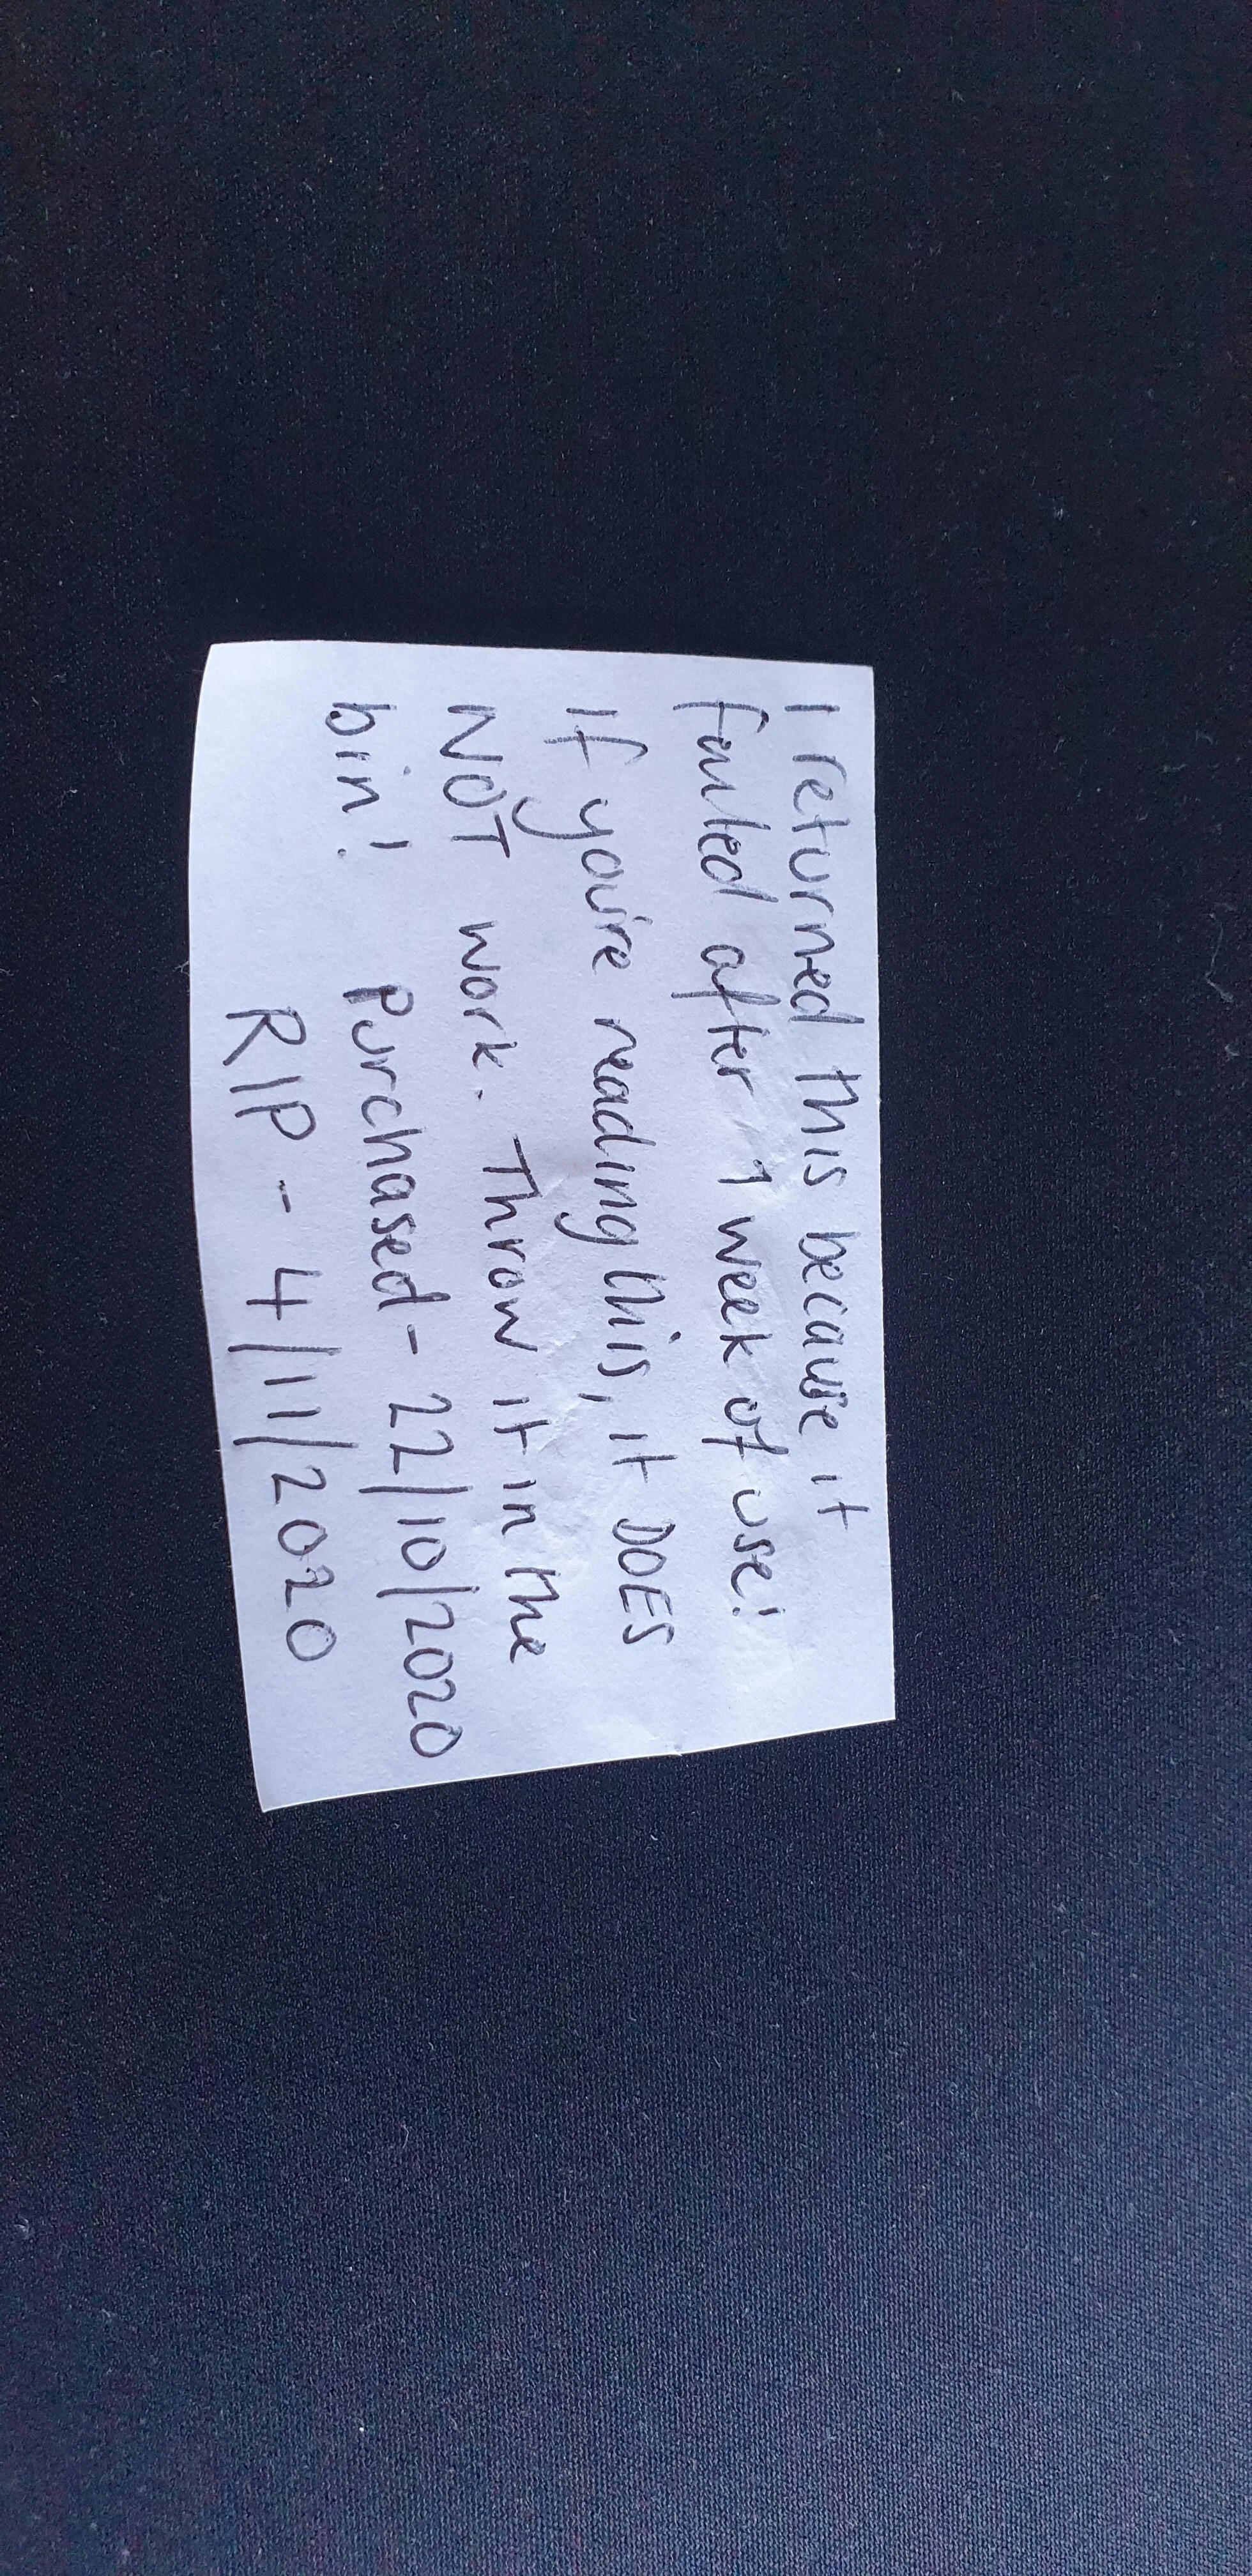 I returned this because it
failed after 1 week of use!
If you're reading this, it DOES
NOT work. Throw it in the
bin! Purchased - 22/10/2020
RIP - 4/11/2020